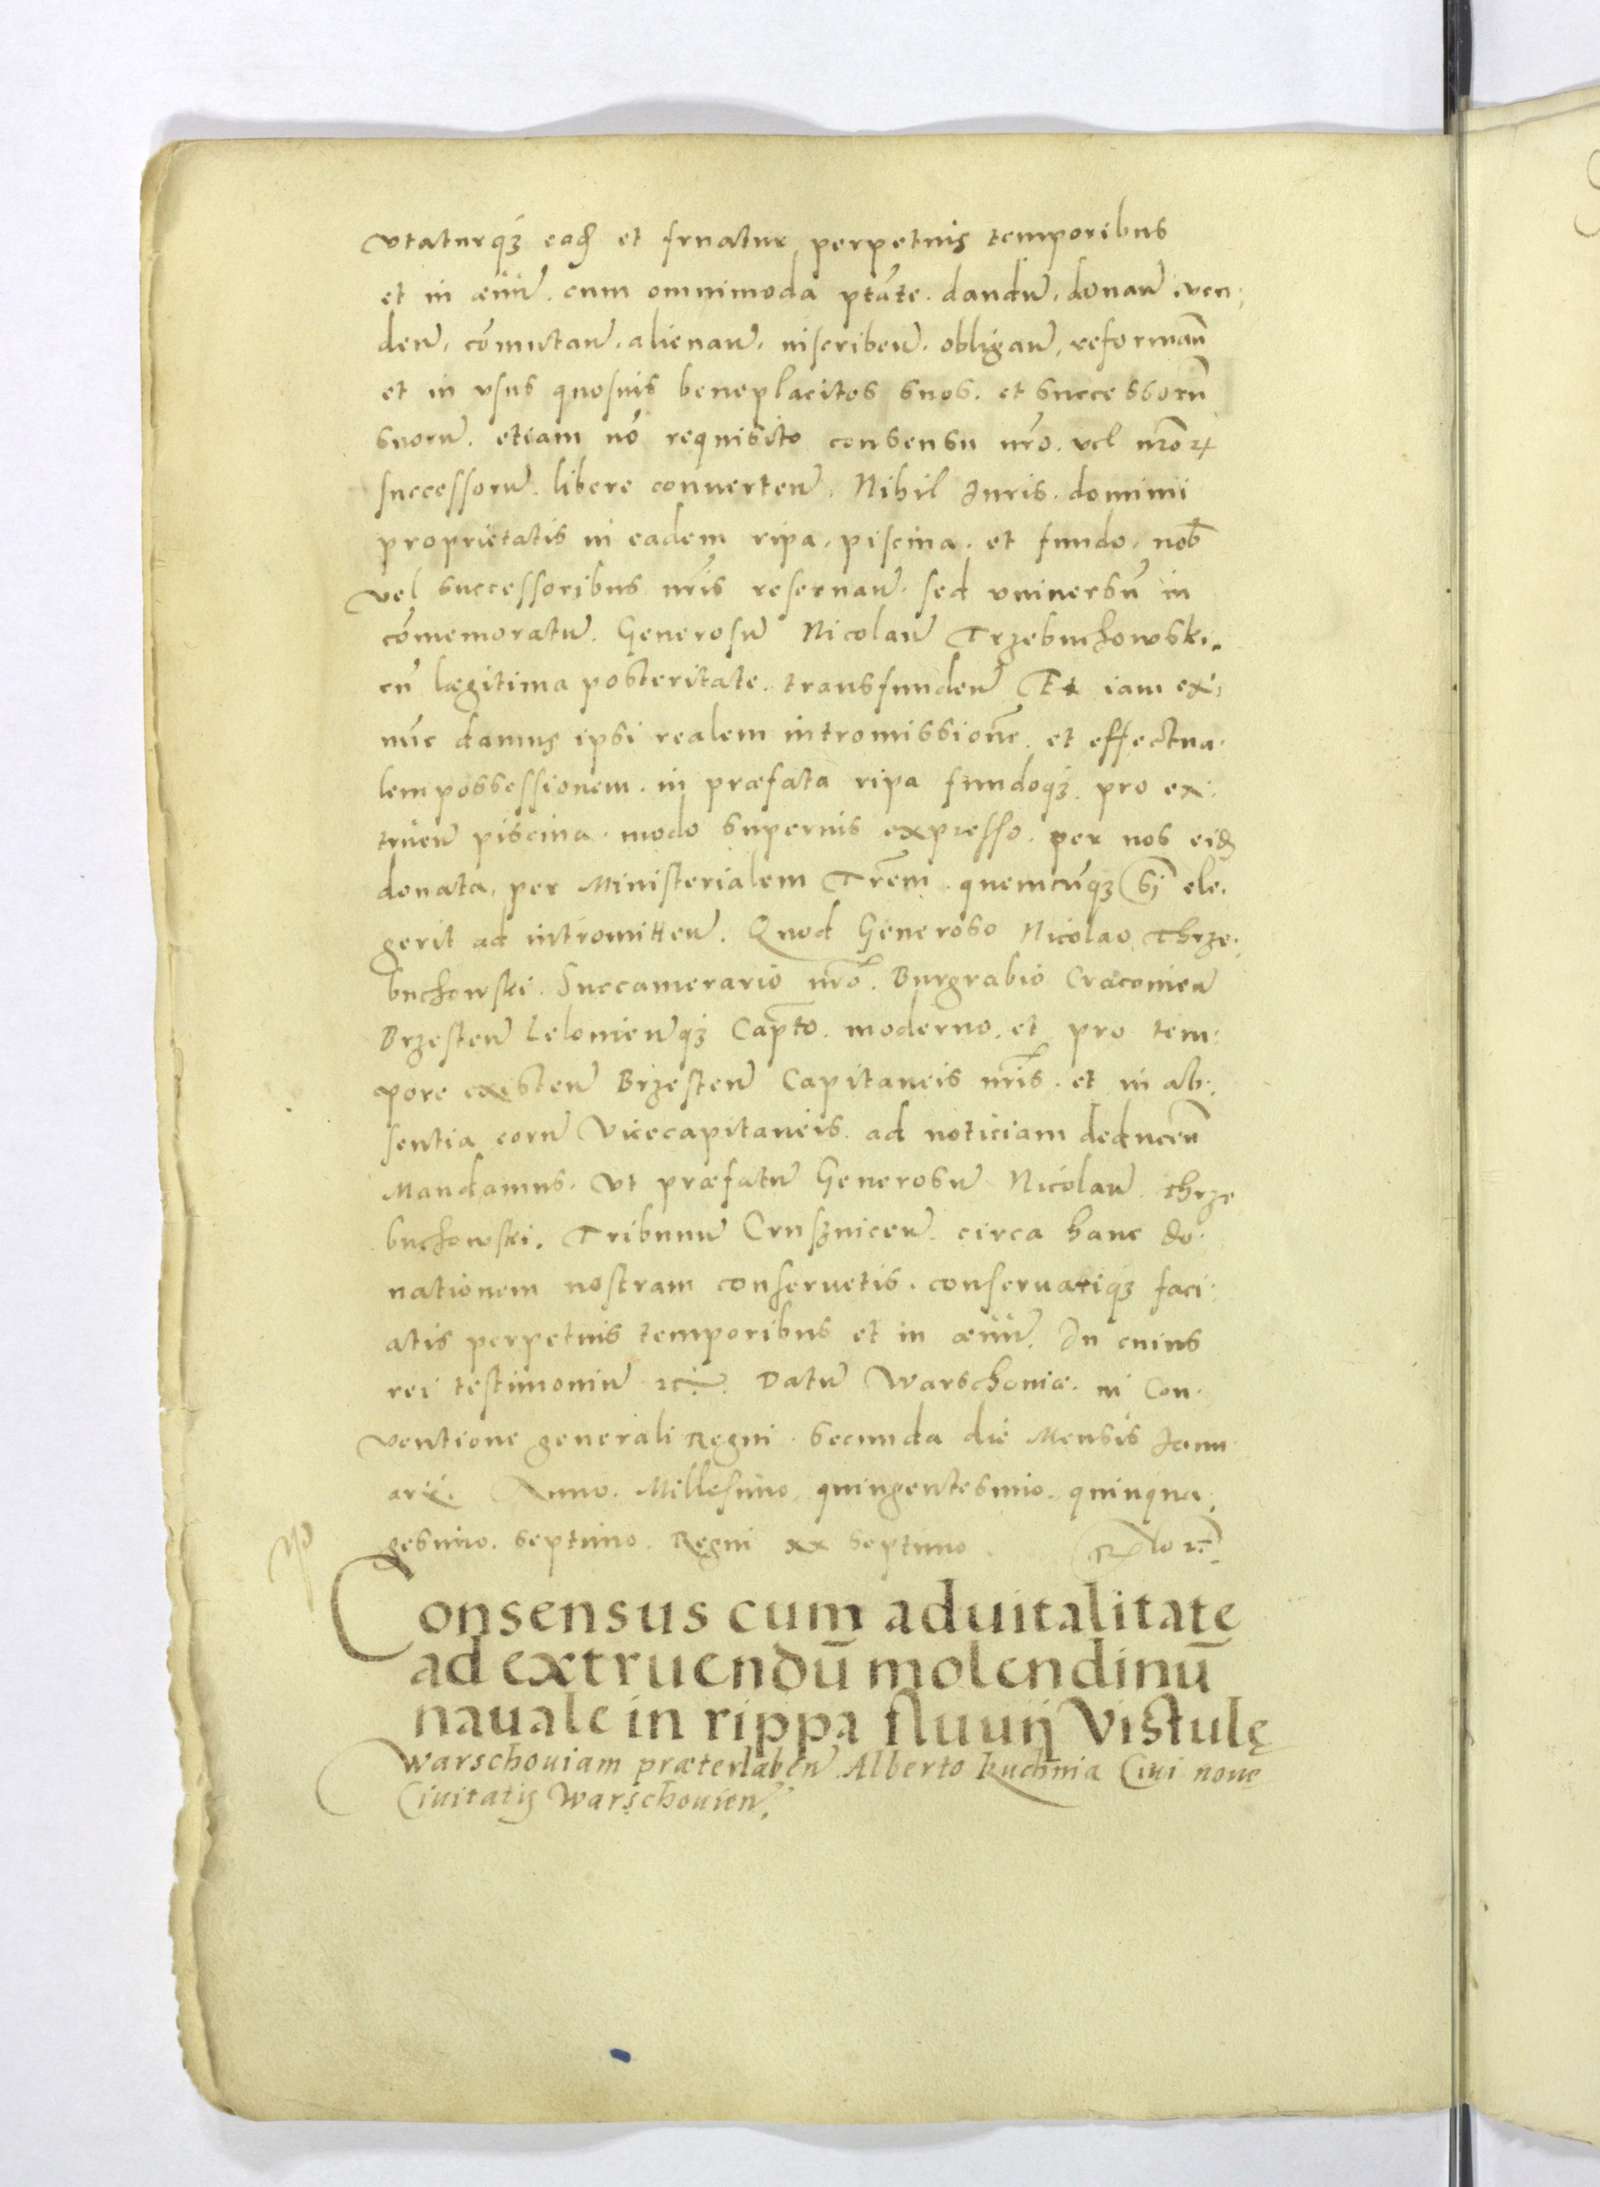 vtaturq́ꝫ eadꝫ et fruatur perpetuis temporibus
et in æuū. cum omnimoda ptāte. dandū. donaū. ven-
deū. cōmutaū. alienaū. inscribeū. obligaū, reformaū
et in vsus quosuis beneplacitos suos. et successorū
suorū. etiam nō requisito consensu nr̄o. vel nr̄oꝝ
successorū. libere conuerteū. Nihil Juris. dominii
proprietatis in eadem ripa, piscina. et fundo, nob̄
vel successoribus nr̄is reseruaū. sed vniuersū in
cōmemoratū. Generosū Nicolaū Trzebuchowski.
cū lægitima posteritate. transfundeū Et iam ex-
nūc damus ipsi realem intromissionē. et effectua-
lem possessionem. in præfata ripa fundoqꝫ. pro ex-
trueū piscina. modo superius expresso. per nos eidꝫ
donata, per Ministerialem Tr̄em. quemcūqꝫ si ele-
gerit ad intromitteū. Quod Generoso Nicolao Thrze-
buchowski. Succamerario nr̄o. Burgrabio Cracouieū
Brzesteū Lelouieūqꝫ Cap̄to. moderno. et pro tem-
pore existeū Brzesteū Capitaneis nr̄is. et in ab-
sentia eorū Vicecapitaneis. ad noticiam deduceū
Mandamus. Vt præfatū Generosū Nicolaū. Thrze
buchowski. Tribunū Cruszuiceū. circa hanc do-
nationem nostram conseruetis. conseruariqꝫ faci-
atis perpetuis temporibus et in æuū. In cuius
rei testimoniū ꝛc. Datū Warschouiæ. in Con-
uentione generali Regni. secunda die Mensis Janu-
arii. Anno. Millesimo, quingentesimo. quinqua-
gesimo. septimo. Regni xx septimo.
Consensus cum aduitalitate
ad extruendū molendinū
nauale in rippa fluuij Vistulę
Warschouiam præterlabeū Alberto kuchnia Ciui nouę
Ciuitatis Warschouieū.